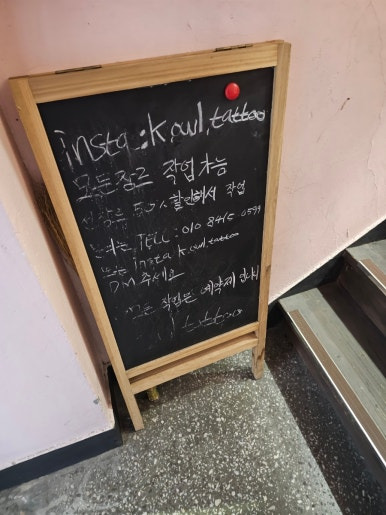 insta : k.owl.tattoo
모든장르 작업 가능
50% 할인해서 작업
문의는 TELL : 010 8415 0599
또는 insta k.owl.tattoo
DM 주세요
모든 작업은 예약제 입니다
tattoo